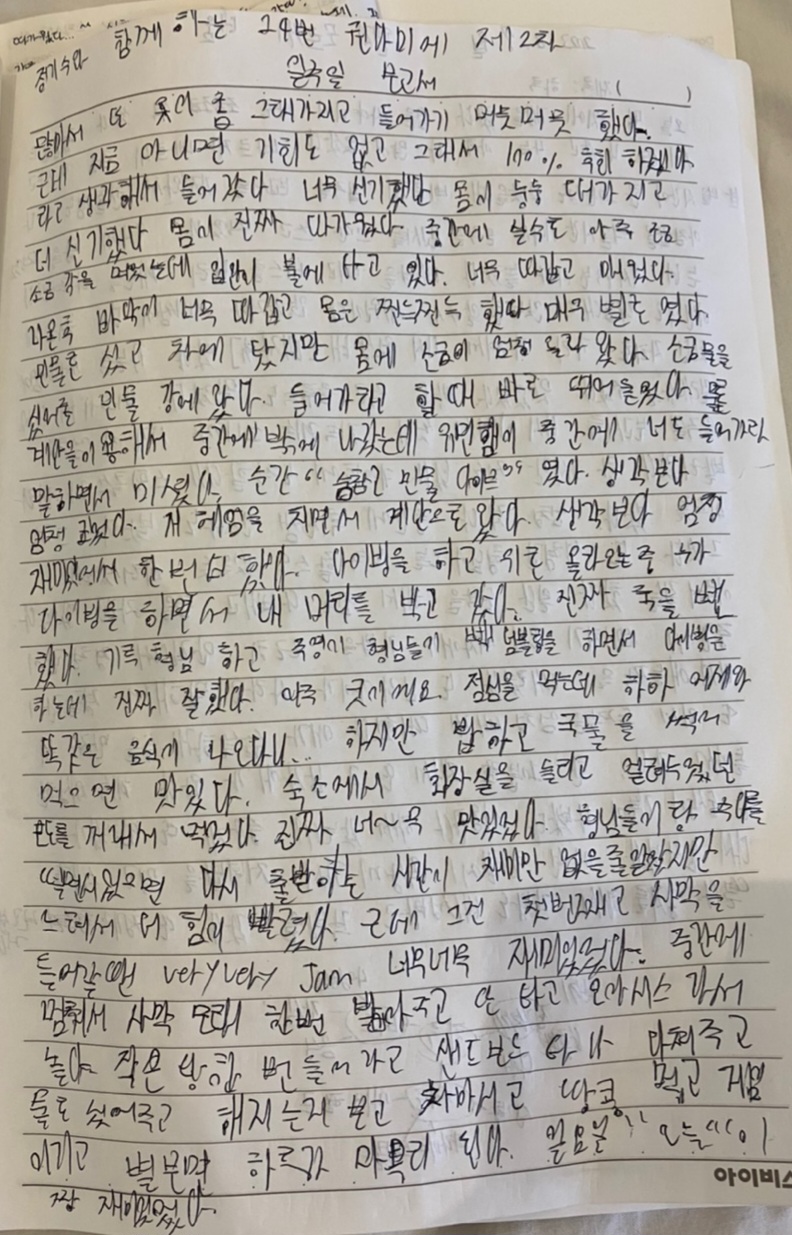 따가웠다...
정기수와 함께 하는 24번 권아미에 제2차
일주일 보고서 ( )
많아서 또 옷이 좀 그래가지고 들어가기 머뭇머뭇 했다.
근데 지금 아니면 기회도 없고 그래서 100% 후회 하겠다
라고 생각해서 들어갔다 너무 신기했다 몸이 둥둥 떠가지고
더 신기했다 몸이 진짜 따가웠다. 중간에 실수로 아주 조금
소금 물을 먹었는데 입안이 불에 타고 있다. 너무 따갑고 매웠다.
나온후 바닥이 너무 따갑고 몸은 찐득찐득 했다 매우 별로 였다.
민물로 씻고 차에 탔지만 몸에 소금이 엄청 올라 왔다. 소금물을
씻어줄 민물 강에 왔다. 들어가라고 할 때 바로 뛰어들었다. 물
계단을이용해서 중간에 밖에 나갔는데 위민햄이 중간에 너도 들어가라
말하면서 미셨다. 순간 “ 민물 다이브” 였다. 생각보다
엄청 깊었다. 개 헤엄을 치면서 계단으로 왔다. 생각보다 엄청
재미있어서 한번 더 했다. 다이빙을 하고 위로 올라오는중 누가
다이빙을 하면서 내 머리를 박고 갔다. 진짜 죽을 뻔
했다. 기륵 형님 하고 주영기 형님들기 백 덤블링을 하면서 다이빙을
하는데 진짜 잘했다. 아주 굿이에요. 점심을 먹는데 하하 어제와
똑같은 음식이 나오다니... 하지만 밥하고 국물을 썩어
먹으면 맛있다. 숙소에서 화장실을 들리고 얼려두었던
포도를 꺼내서 먹었다. 진짜 너~무 맛있었다. 형님들이랑 수다를
떨면서있으면 다시 출발하는 시간이 재미만 없을줄알았지만
느려서 더 힘이 빨렸다. 근데 그건 첫번째고 사막을
들어갈땐 very very Jam 너무너무 재미있었다. 중간에
멈춰서 사막 모래 한번 밟아주고 또 타고 오아시스 가서
놀다 작은 방갈 번들어가고 샌드보드 타다 자빠져주고
물로 씻어주고 해지는거 보고 차마시고 땅콩 먹고 게임
이기고 별보며 하루가 마무리 된다. 일요일 “오늘”이
짱 재미있었다.
아이비스